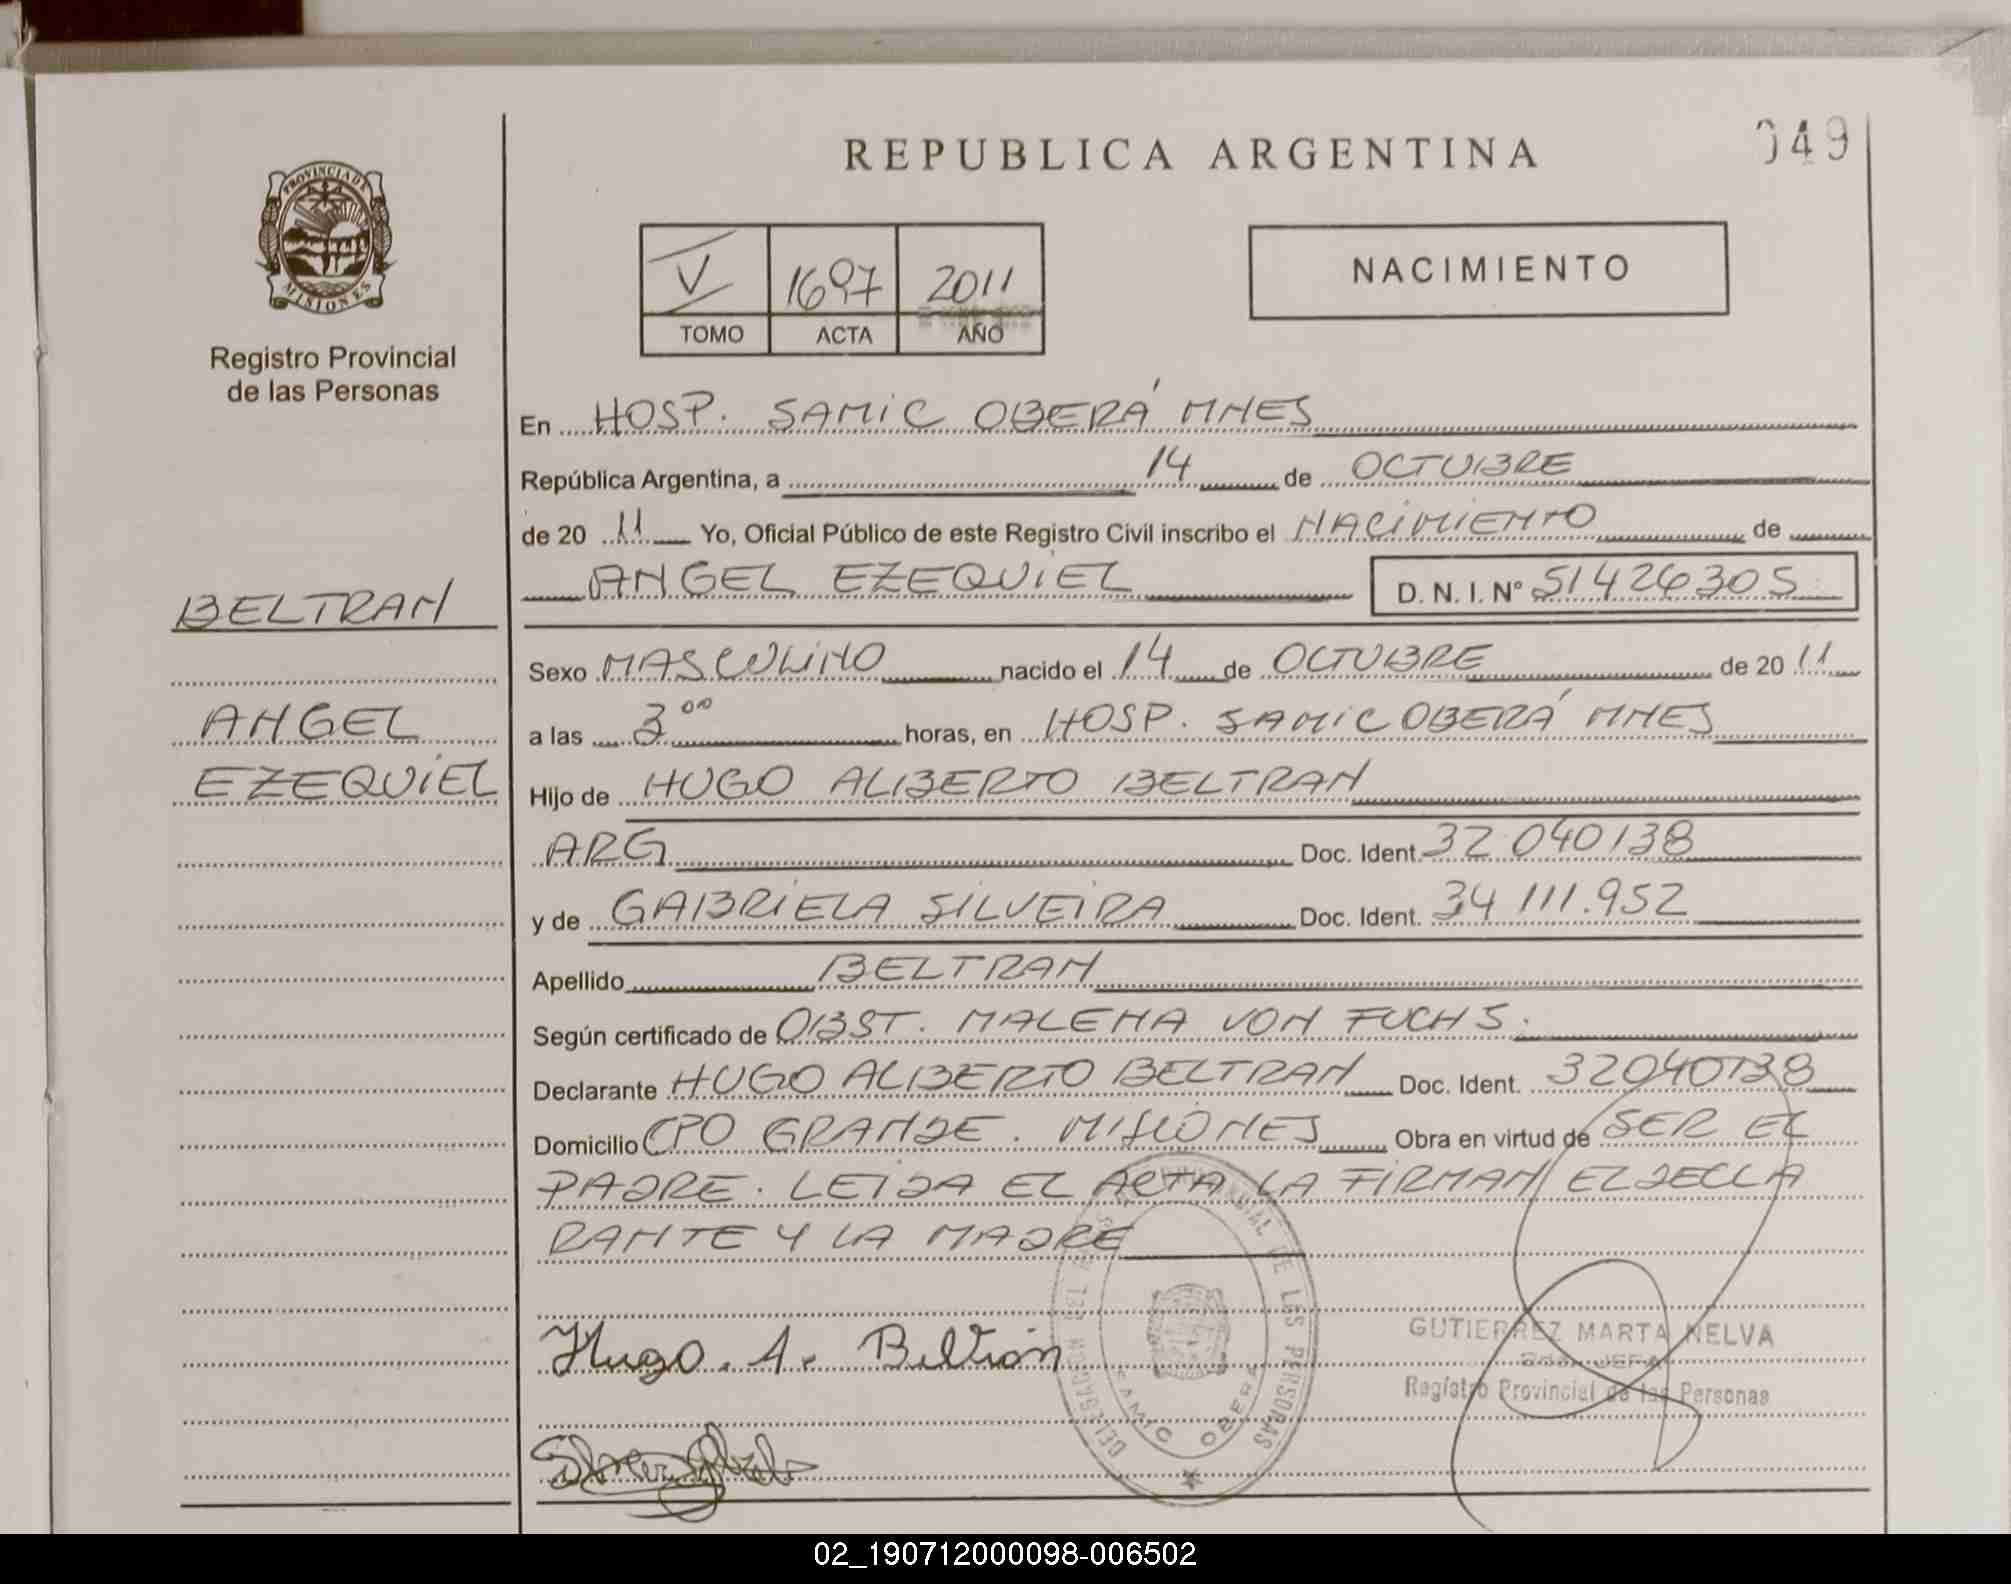 REPUBLICA ARGENTINA
049
PROVINCIA DE
MISIONES
Registro Provincial
de las Personas
V 1697 2011
TOMO ACTA AÑO
NACIMIENTO
En HOSP. SAMIC OBERÁ MNES
República Argentina, a 14 de OCTUBRE
de 20 11 Yo, Oficial Público de este Registro Civil inscribo el NACIMIENTO de
ANGEL EZEQUIEL D. N. I. Nº 51426305
BELTRAN
ANGEL
EZEQUIEL
Sexo MASCULINO nacido el 14 de OCTUBRE de 20 11
a las 3 00 horas, en HOSP. SAMIC OBERÁ MNES
Hijo de HUGO ALBERTO BELTRAN
ARG Doc. Ident. 32 040138
y de GABRIELA SILVEIRA Doc. Ident. 34 111.952
Apellido BELTRAN
Según certificado de OBST. MALENA VON FUCHS.
Declarante HUGO ALBERTO BELTRAN Doc. Ident. 32040138
Domicilio CPO GRANDE. MISIONES Obra en virtud de SER EL
PADRE. LEIDA EL ACTA LA FIRMAN EL DECLA
RANTE Y LA MADRE
Hugo. A. Beltrán
DE LAS PERSONAS
SAMIC OBERA
GUTIERREZ MARTA NELVA
JEFA
Registro Provincial de las Personas
02_190712000098-006502